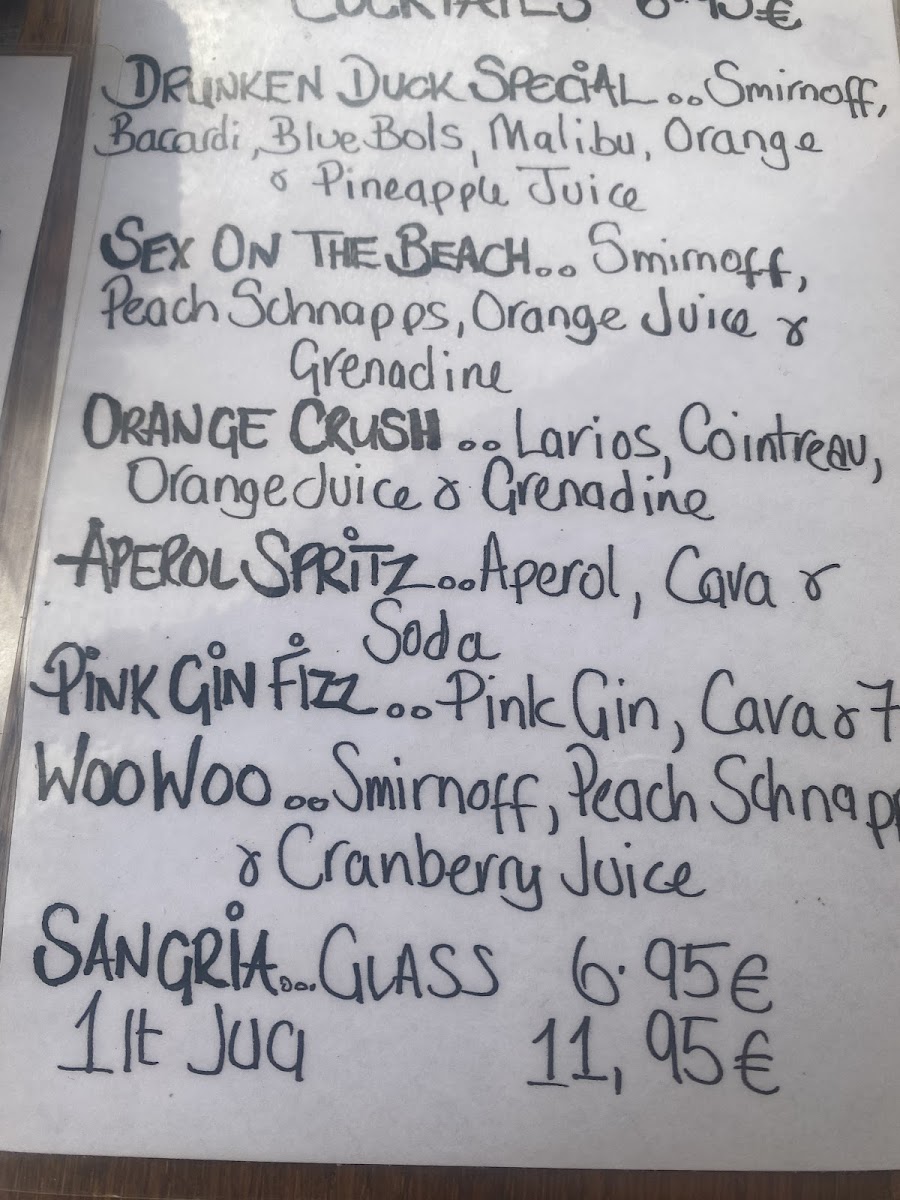 COCKTAILS 6.95€
DRUNKEN DUCK SPECIAL... Smirnoff,
Bacardi, Blue Bols, Malibu, Orange
& Pineapple Juice
SEX ON THE BEACH... Smirnoff,
Peach Schnapps, Orange Juice &
Grenadine
ORANGE CRUSH... Larios, Cointreau,
Orange Juice & Grenadine
APEROL SPRITZ... Aperol, Cava &
Soda
PINK GIN FIZZ... Pink Gin, Cava & 7
WOO WOO... Smirnoff, Peach Schnapp
& Cranberry Juice
SANGRIA... GLASS 6.95€
1 lt JUG 11,95€